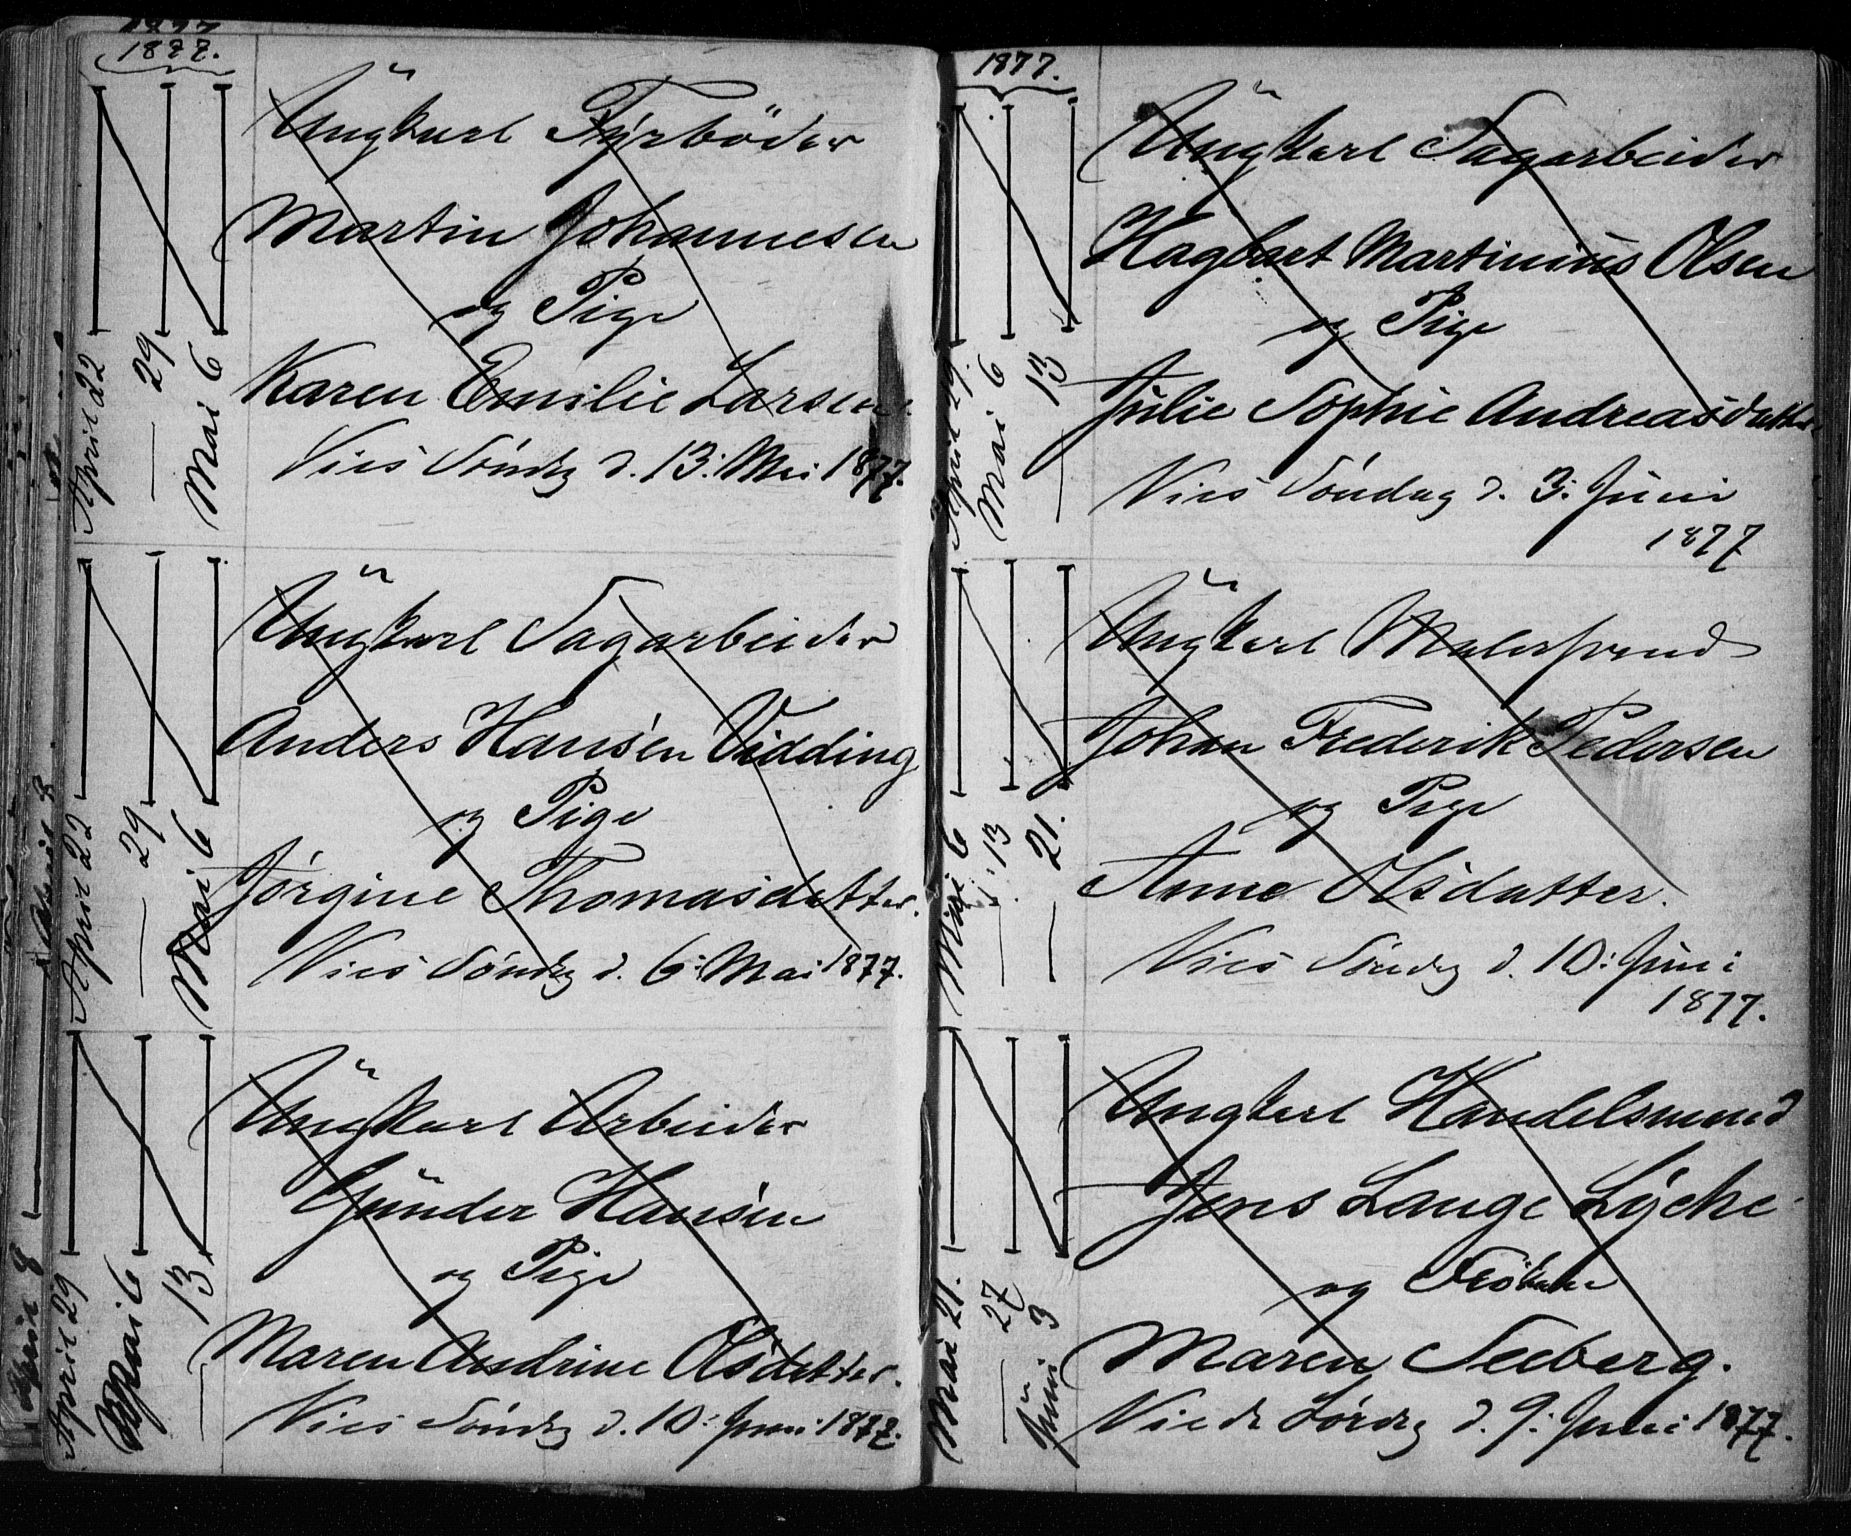 1877.
April 22
— 29
Mai 6
Ungkarl Fyrbøder
Martin Johannesen
og Pige
Karen Emilie Larsen
Vies Søndg d. 13: Mai 1877.
April 22
— 29
Mai 6
Ungkarl Sagarbeider
Anders Hansen Vidding
og Pige
Jørgine Thomasdatter.
Vies Søndg d. 6: Mai 1877.
April 29
Mai 6
— 13
Ungkarl Arbeider
Gunder Hansen
og Pige
Maren Andrine Olsdatter.
Vies Søndg d. 10: Juni 1877.
1877.
April 29.
Mai 6
— 13
Ungkarl Sagarbeider
Hagbart Martinius Olsen
og Pige
Julie Sophie Andreasdatter
Vies Søndag d. 3: Juni
1877
Mai 6
— 13
— 21.
Ungkarl Malersvend
Johan Frederik Pedersen
og Pige
Anne Olsdatter.
Vies Søndg d. 10: Juni
1877.
Mai 21.
— 27
Juni 3
Ungkarl Handelsmand
Jens Lange Lyche
og Frøken
Maren Seeberg.
Viede Lørdg d. 9: Juni 1877.